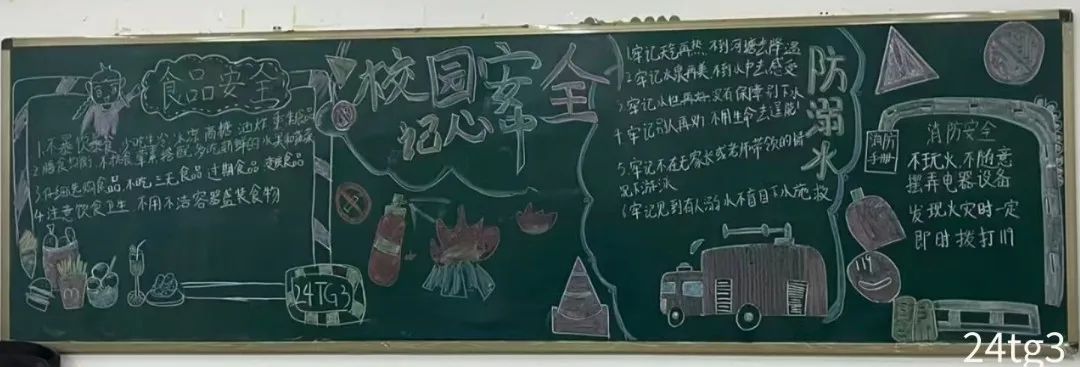 食品安全
1.不暴饮暴食 少吃生冷 冰冻 高糖 油炸
2.膳食均衡 不挑食 荤素搭配 多吃新鲜的水果和蔬菜
食品 不吃三无食品 过期食品 变质食品
4.注意饮食卫生 不用不洁容器盛装食物
24TG3
校园安全
记心中
1.牢记天气再热 不到河塘去降温
2.牢记水景再美 不到水中去感受
3.牢记水性再好 没有保障别下水
4.牢记别人再劝 不用生命去逞能
5.牢记不在无家长或老师带领的情
况下游泳
6.牢记见到有人溺水不盲目下水施救
防溺水
消防
手册
消防安全
不玩火 不随意
摆弄电器设备
发现火灾时一定
即时拨打119
119
24tg3